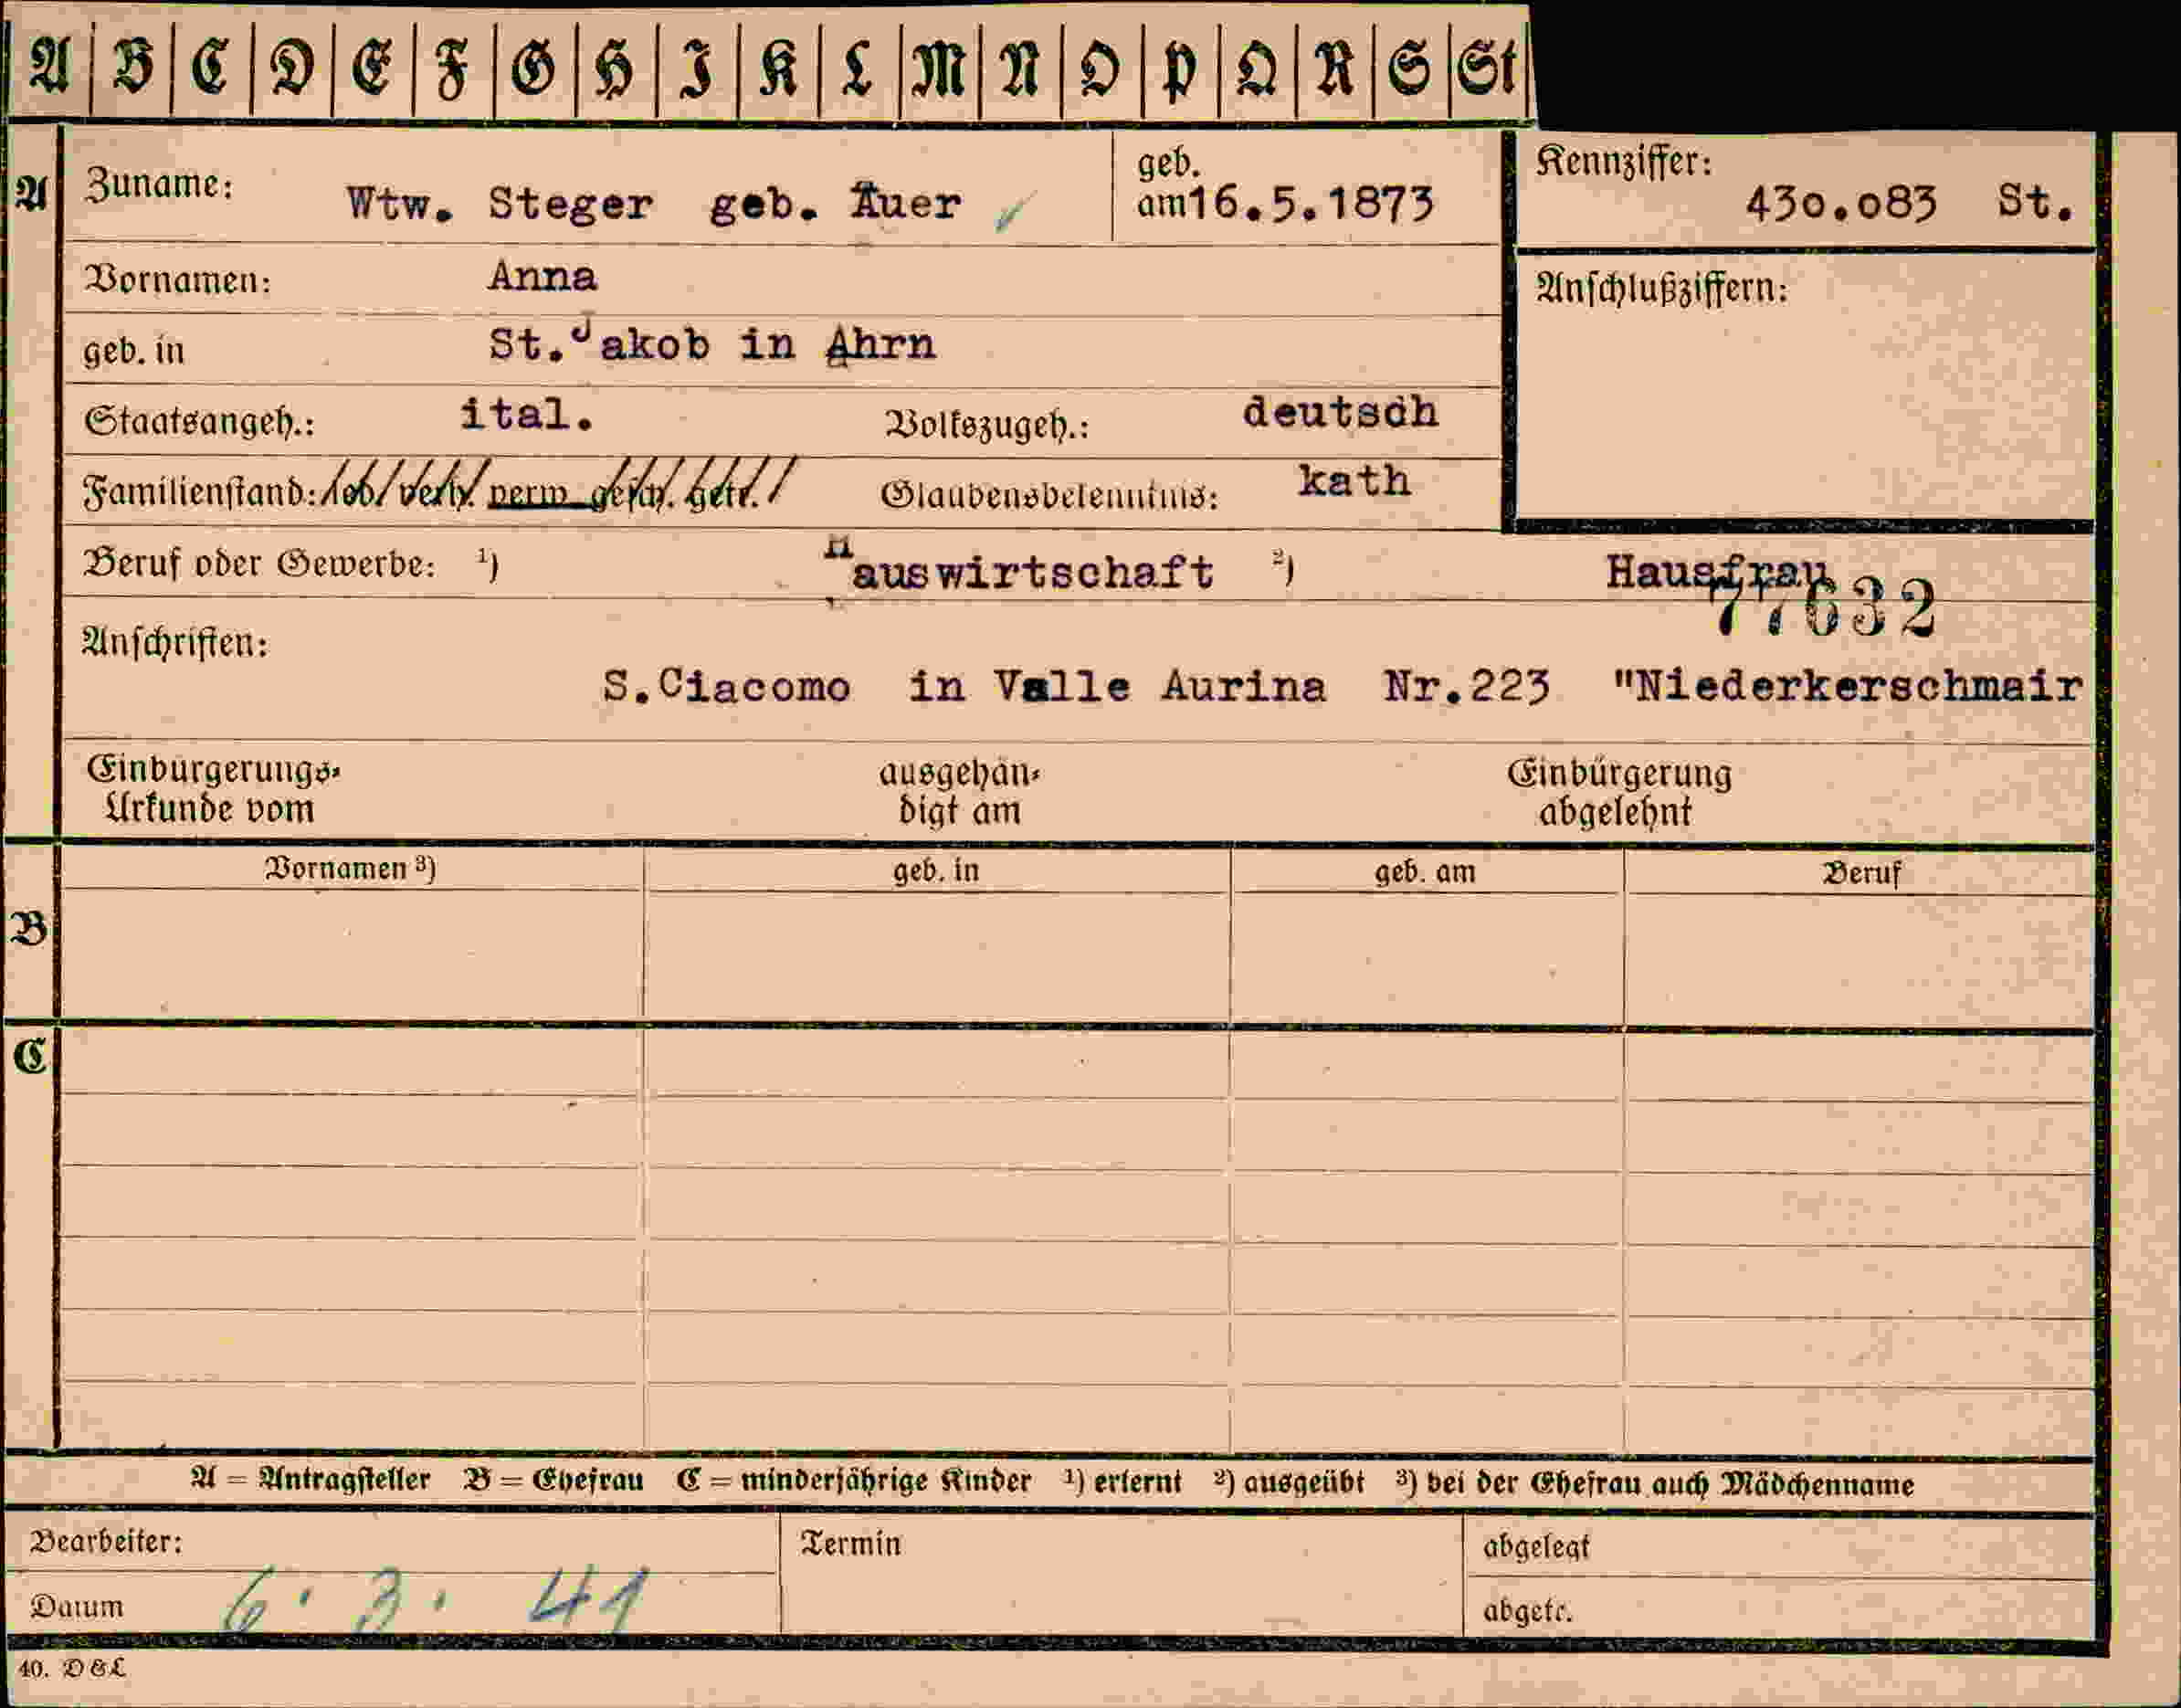 A B C D E F G H I K L M N O P Q R S St
A Zuname: Wtw. Steger geb. Auer geb. am 16.5.1873 Kennziffer: 430.083 St.
Vornamen: Anna Anschlußziffern:
geb. in St.Jakob in Ahrn
Staatsangeh.: ital. Volkszugeh.: deutsch
Familienstand: led. verh. verw. gesch. getr. Glaubensbekenntnis: kath
Beruf oder Gewerbe: ¹) Hauswirtschaft ²) Hausfrau
77632
Anschriften:
S.Ciacomo in Valle Aurina Nr.223 "Niederkerschmair
Einbürgerungs- ausgehän- Einbürgerung
Urkunde vom digt am abgelehnt
Vornamen ³) geb. in geb. am Beruf
B
C
A = Antragsteller B = Ehefrau C = minderjährige Kinder ¹) erlernt ²) ausgeübt ³) bei der Ehefrau auch Mädchenname
Bearbeiter: Termin abgelegt
Datum 6. 3. 41 abgetr.
40. D & L